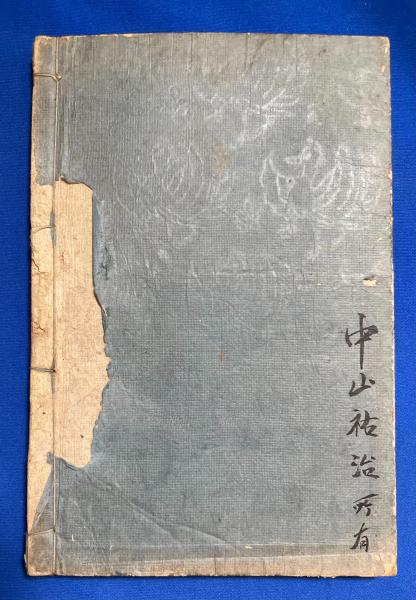 中山祐治所有